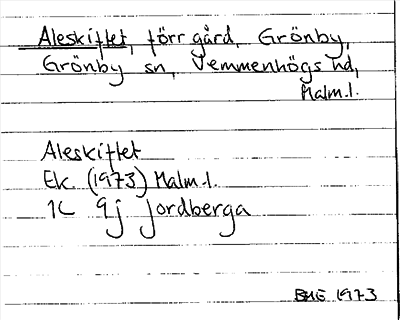 Aleskiftet, förr gård, Grönby,
Grönby sn, Vemmenhögs hd,
Malm.l.
Aleskiftet
Ek. (1973) Malm.l.
1C 9j Jordberga
BHE 1973